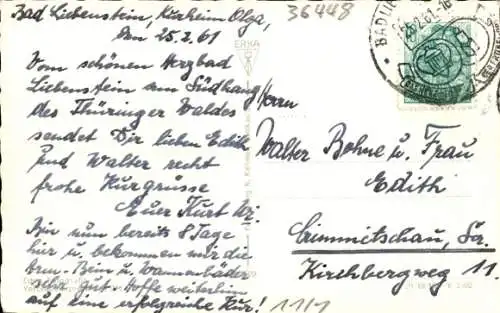 Bad Liebenstein, Kurheim Olga,
den 25.2.61
Vom schönen Herzbad
Liebenstein am Südhang
des Thüringer Waldes
sendet Dir lieben Edith
und Walter recht
frohe Kurgrüsse
Euer Kurt
Bin nun bereits 8 Tage
hier u. bekommen mir die
Bein u. Wannenbäder
sehr gut. Hoffe weiterhin
auf eine erfolgreiche Kur!
36448
ERKA
BAD LI
Herrn
Walter Bohne u. Frau
Edith
Crimmitschau, Sa.
Kirchbergweg 11.
11/1